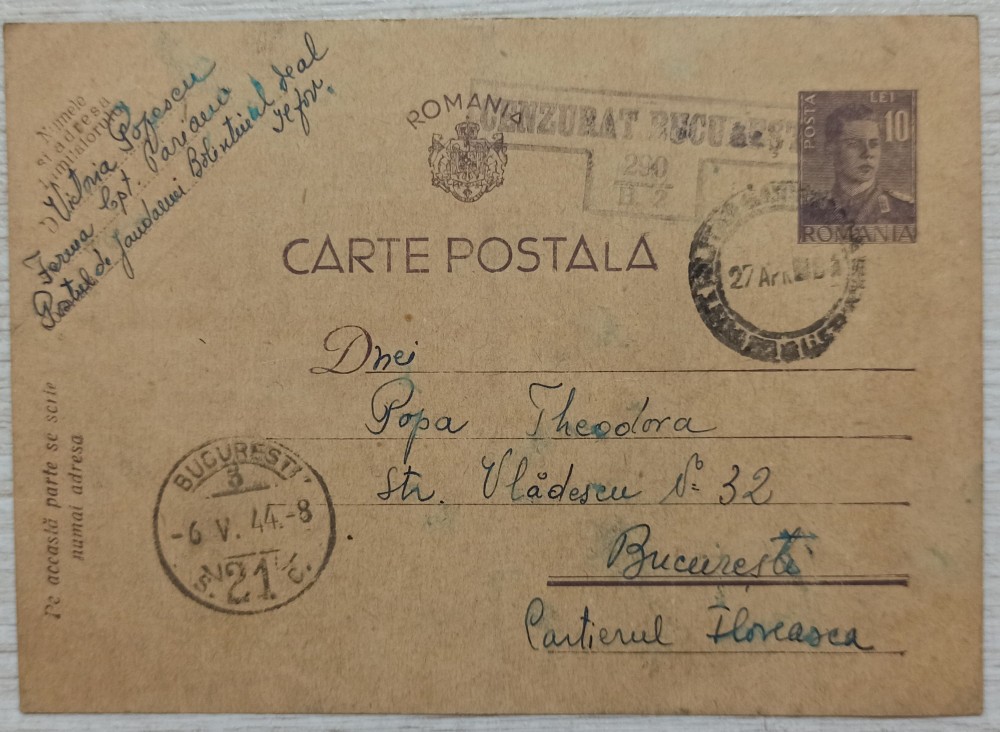 Numele
și adresa
trimițătorului
Victoria Popescu
Ferma Cpt. Parăianu
Postul de Jandarmi Bolentinul Deal
Ilfov.
ROMANIA
CENZURAT BUCUREȘTI
290
B. 2
POSTA
LEI
10
ROMANIA
CARTE POSTALA
27 APR
Dnei
Popa Theodora
Str. Vlădescu No 32
București
Cartierul Floreasca
Pe această parte se scrie
numai adresa
BUCUREȘTI
3
-6 V. 44.-8
21